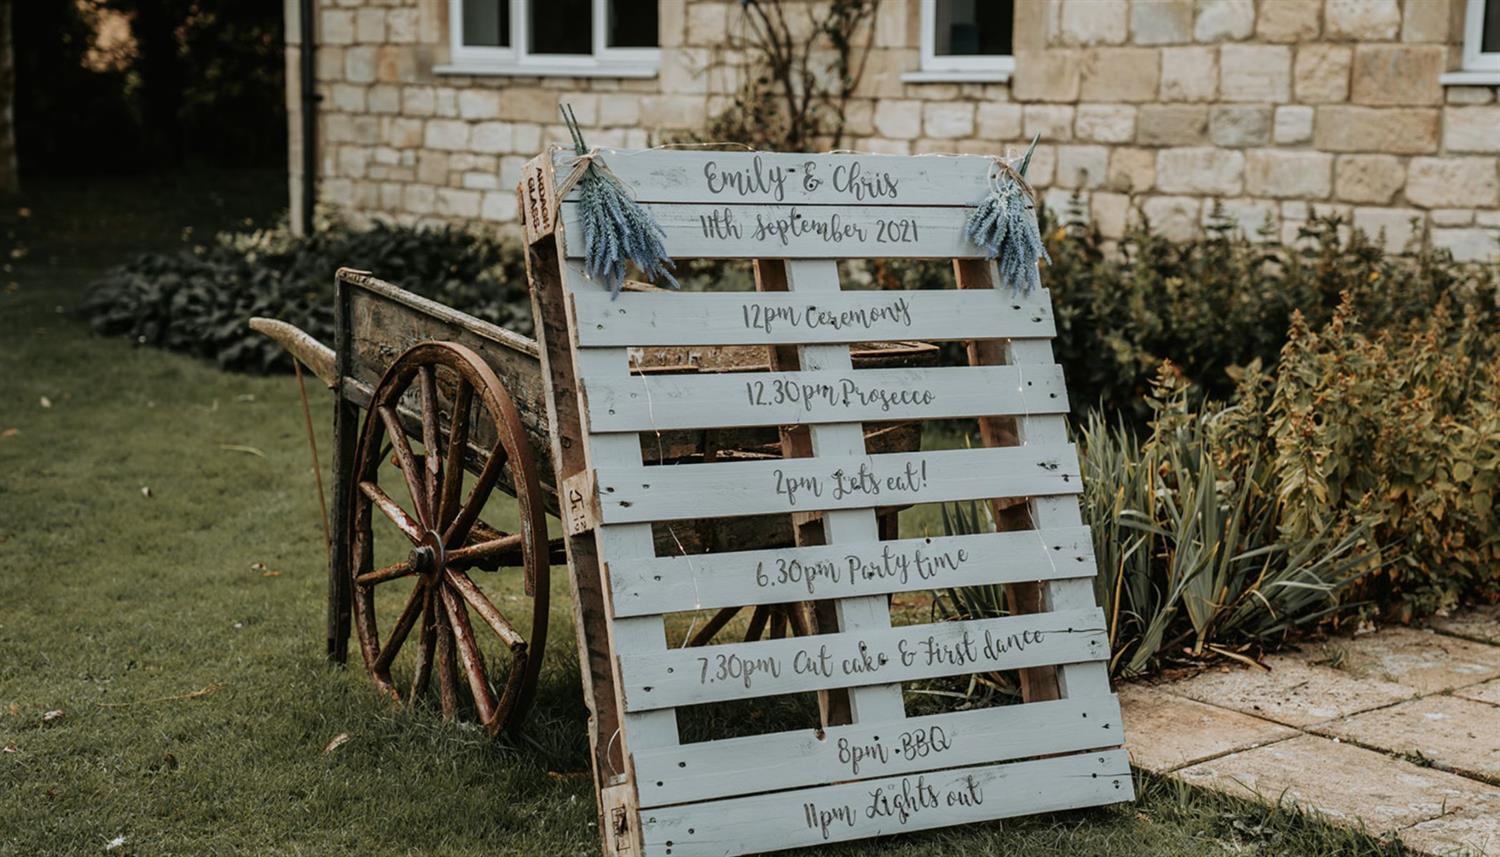 Emily & Chris
11th September 2021
12pm Ceremony
12.30pm Prosecco
2pm Lets eat!
6.30pm Party time
7.30pm Cut cake & First dance
8pm BBQ
11pm Lights out